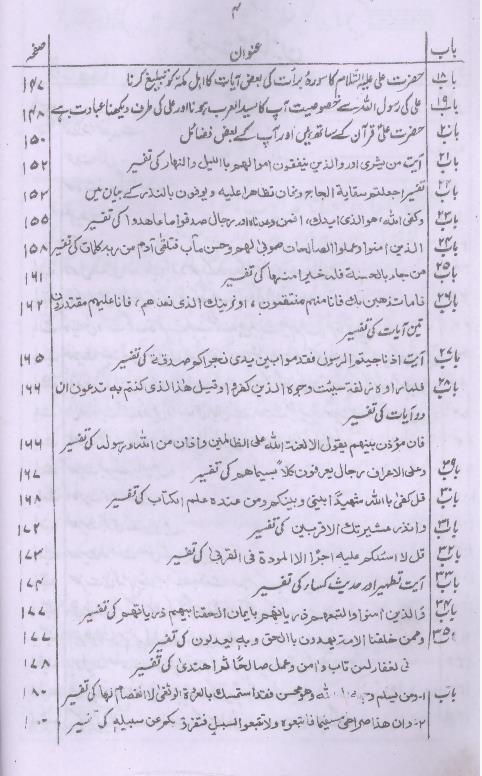 ۴
باب عنوان صفحہ
باب۱۸ حضرت علی علیہ السّلام کا سورہ برأت کی بعض آیات کا اہل مکہ کو تبلیغ کرنا ۱۴۷
باب۱۹ علی کی رسول اللہ سے خصوصیت آپ کا سید العرب ہونا اور علی کی طرف دیکھنا عبادت ہے ۱۴۸
باب۲۰ حضرت علی قرآن کے ساتھ ہیں اور آپ کے بعض فضائل ۱۵۰
باب۲۱ آیت من یشری اور والذین ینفقون اموالہم بااللیل والنہار کی تفسیر ۱۵۲
باب۲۲ تفسیر اجعلتم سقایۃ الحاج وان تظاہرا علیہ و یوفون بالنذر کے بیان میں ۱۵۳
باب۲۳ وکفی اللہ، ہو الذی ایدک، افمن وعدناہ اور رجال صدقوا ما عاہدوا کی تفسیر ۱۵۵
باب۲۴ الذین امنوا وعملوا الصالحات طوبی لہم وحسن مآب فتلقی آدم من ربہ کلمات کی تفسیر ۱۵۸
باب۲۵ من جاء بالحسنۃ فلہ خیر منہا کی تفسیر ۱۶۱
باب۲۶ فامات ذہبن بک فانا منہم منتقمون، او نرینک الذی نعدہم، فانا علیہم مقتدرون ۱۶۲
تین آیات کی تفسیر
باب۲۷ آیت اذ ناجیتم الرسول فقدموا بین یدی نجواکم صدقۃ کی تفسیر ۱۶۵
باب۲۸ فلما راوہ زلفۃ سیئت وجوہ الذین کفروا وقیل ہذا الذی کنتم بہ تدعون ان ۱۶۶
دو آیات کی تفسیر
فاذن مؤذن بینہم یقول الا لعنۃ اللہ علی الظالمین و اذان من اللہ و رسولہ کی تفسیر ۱۶۶
باب۲۹ وعلی الاعراف رجال یعرفون کلا بسیماہم کی تفسیر ۱۶۷
باب۳۰ قل کفی باللہ شہیدًا بینی وبینکم ومن عندہ علم الکتاب کی تفسیر ۱۶۸
باب۳۱ وانذر عشیرتک الاقربین کی تفسیر ۱۷۲
باب۳۲ قل لا اسئلکم علیہ اجرًا الا المودۃ فی القربیٰ کی تفسیر ۱۷۳
باب۳۳ آیت تطہیر اور حدیث کساء کی تفسیر ۱۷۴
باب۳۴ والذین امنوا واتبعتہم ذریاتہم بایمان الحقنا بہم ذریاتہم کی تفسیر ۱۷۷
باب۳۵ وممن خلقنا الامۃ یہدون بالحق وبہ یعدلون کی تفسیر ۱۷۷
فی لغفار لمن تاب و امن وعمل صالحًا ثم اھتدیٰ کی تفسیر ۱۷۸
باب ۱۔ ومن یسلم وجہہ اللہ وھو محسن فقد استمسک بالعروۃ الوثقیٰ لا انفصام لہا کی تفسیر ۱۸۰
۲۔ وان ھذا صراطی مستقیما فاتبعوہ ولا تتبعوا السبل فتفرق بکم عن سبیلہ کی تفسیر